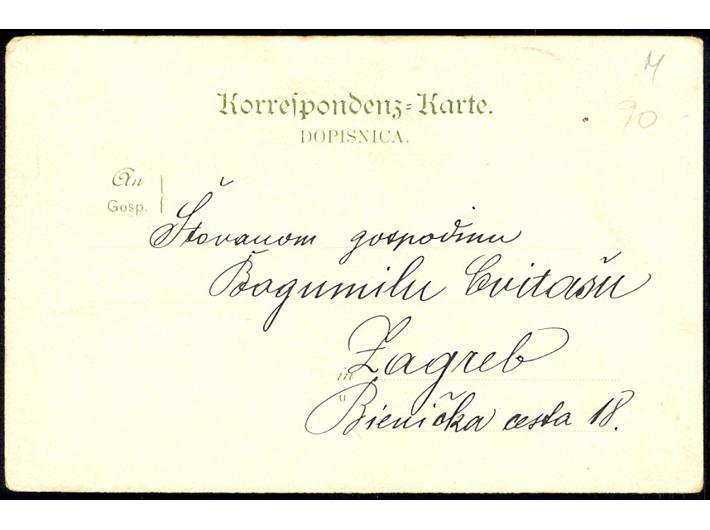 M
90
Korrespondenz-Karte.
DOPISNICA.
An
Gosp.
Štovanom gospodinu
Bogumilu Cvitašu
in Zagreb
u
Bienička cesta 18.